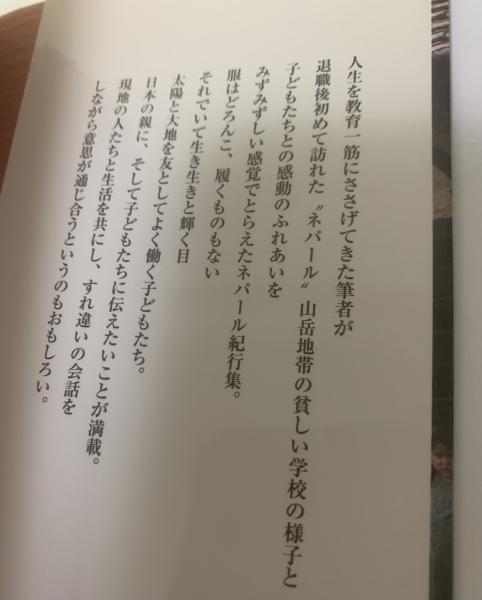 人生を教育一筋にささげてきた筆者が
退職後初めて訪れた〝ネパール〟山岳地帯の貧しい学校の様子と
子どもたちとの感動のふれあいを
みずみずしい感覚でとらえたネパール紀行集。
服はどろんこ、履くものもない
それでいて生き生きと輝く目
太陽と大地を友としてよく働く子どもたち。
日本の親に、そして子どもたちに伝えたいことが満載。
現地の人たちと生活を共にし、すれ違いの会話を
しながら意思が通じ合うというのもおもしろい。